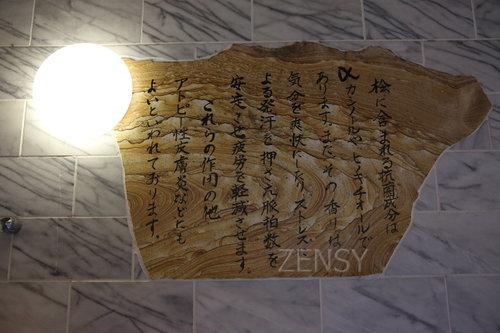 桧に含まれる抗菌成分は
αカジノールやヒノキチオールで
あります。また、その香りは
気分を爽快にしたり、ストレスに
よる発汗を押さえ脈拍数を
安定させ疲労を軽減させます。
これらの作用の他
アトピー性皮膚炎などにも
よいといわれております。
ZENSY